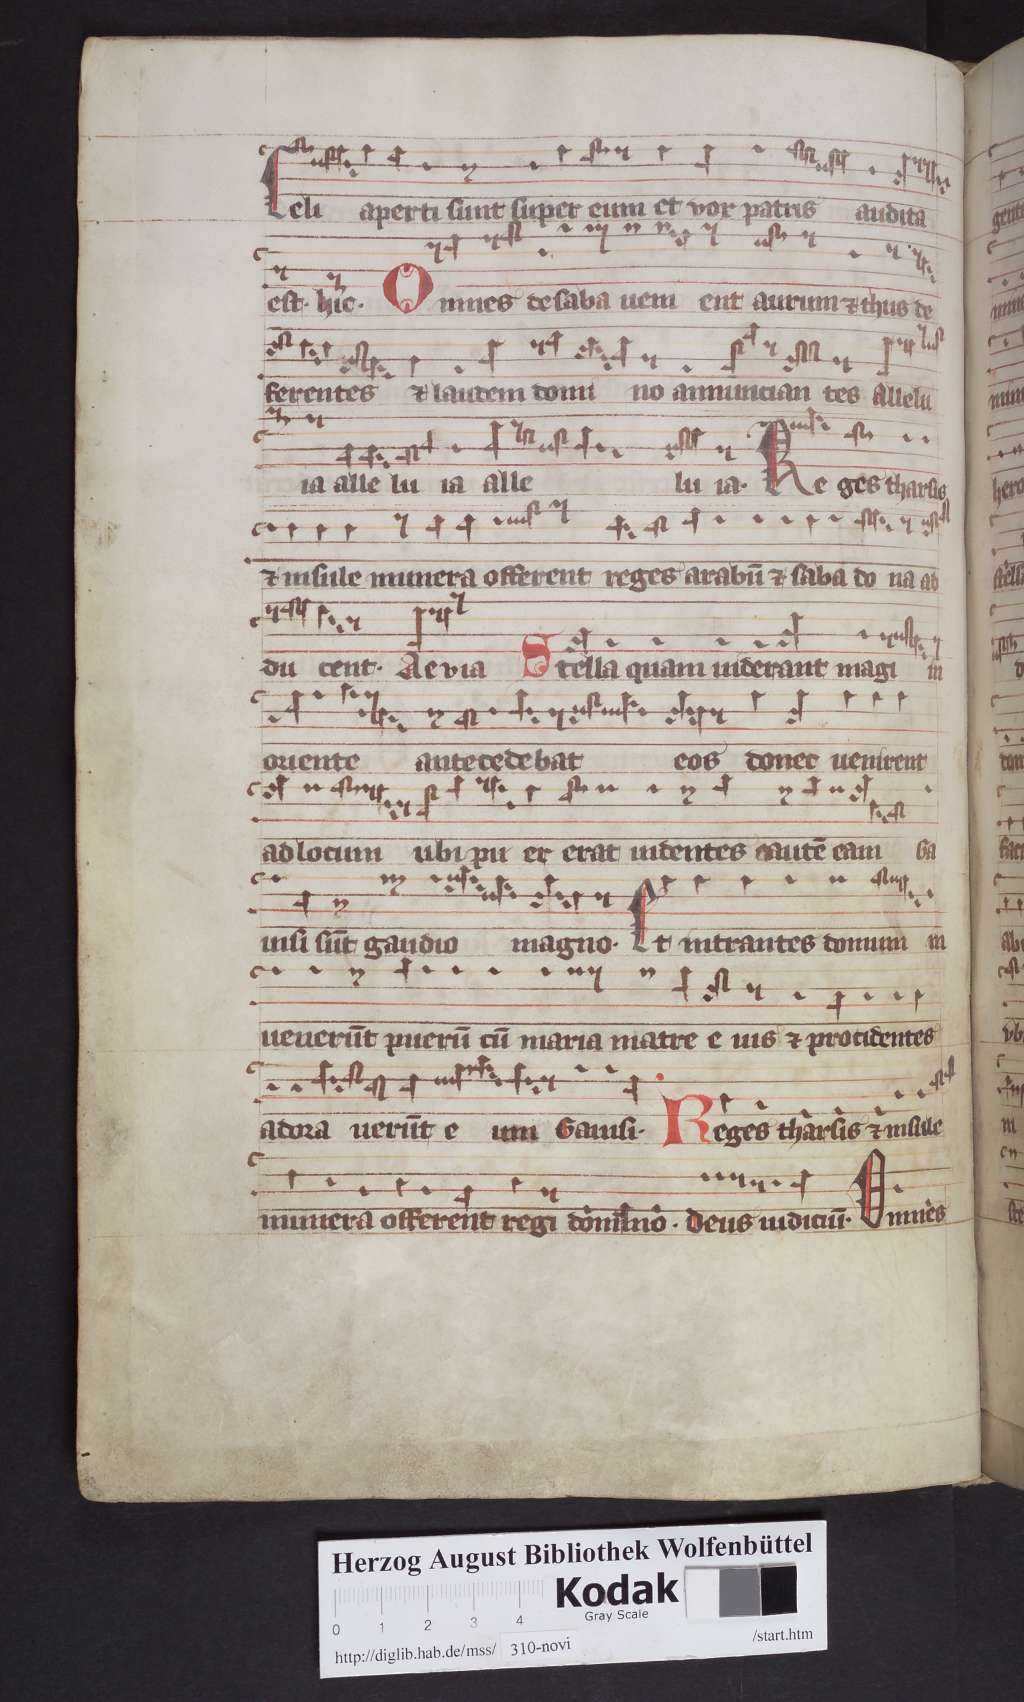 Celi aperti sunt super eum et vox patris audita
est. hic. Omnes de saba ueni ent aurum ⁊ thus de
ferentes ⁊ laudem domi no annuncian tes allelu
ia alle lu ia alle lu ia. Re ges tharsis
⁊ insule munera offerent reges arabū ⁊ saba do na ad
du cent. Aevia Stella quam uiderant magi in
oriente antecedebat eos donec uenirent
ad locum ubi pu er erat uidentes autē eam Ga
uisi sūt gaudio magno. Et intrantes domum in
uenerūt puerū cū maria matre e ius ⁊ procidentes
adora uerūt e um Gauisi. Reges tharsis ⁊ insule
munera offerent regi domino. Deus iudiciū. Omnes
Herzog August Bibliothek Wolfenbüttel
Kodak
Gray Scale
0 1 2 3 4
http://diglib.hab.de/mss/ 310-novi /start.htm